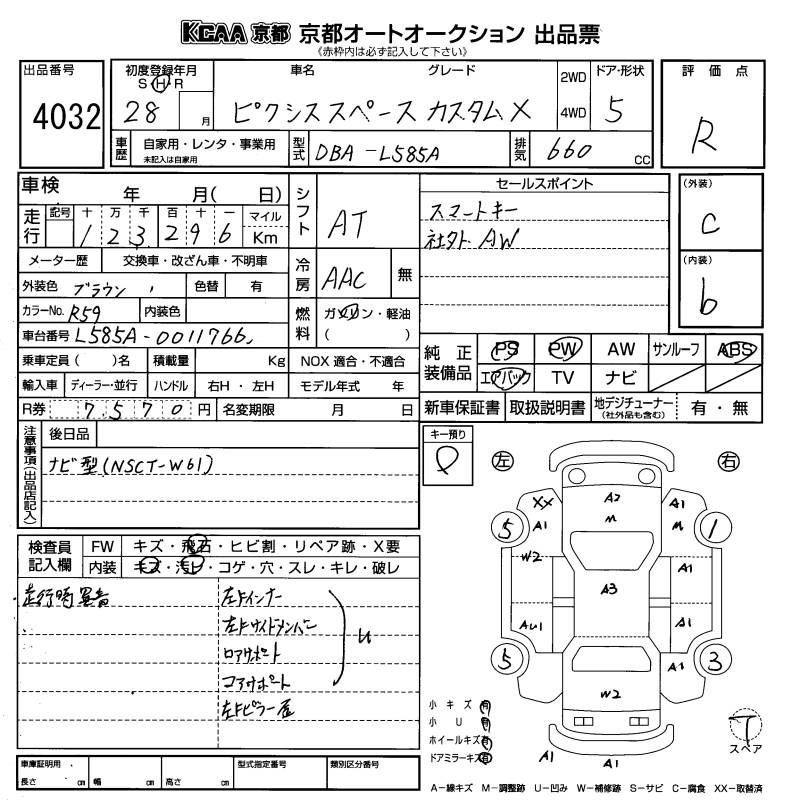 KCAA 京都 京都オートオークション 出品票
《赤枠内は必ず記入して下さい》
出品番号
4032
初度登録年月
S H R
28 月
車名 グレード
ピクシススペース カスタムX
2WD
4WD
ドア・形状
5
評価点
R
車歴
自家用・レンタ・事業用
未記入は自家用
型式
DBA-L585A
排気
660 CC
車検 年 月( 日)
走行
記号 十 万 千 百 十 一 マイル
1 2 3 2 9 6 Km
メーター歴 交換車・改ざん車・不明車
外装色 ブラウン 色替 有
カラーNo. R59 内装色
車台番号 L585A-0011766
乗車定員 ( )名 積載量 Kg
輸入車 ディーラー・並行 ハンドル 右H・左H
R券 7,570円 名変期限 月 日
シフト
AT
冷房
AAC 無
燃料
ガソリン・軽油
( )
NOX 適合・不適合
モデル年式 年
セールスポイント
スマートキー
社外AW
(外装)
C
(内装)
b
純正装備品
PS PW AW サンルーフ ABS
エアバック TV ナビ
新車保証書 取扱説明書 地デジチューナー
(社外品も含む)
有・無
注意事項(出品店記入)
後日品
ナビ型(NSCT-W61)
検査員記入欄
FW キズ・飛石・ヒビ割・リペア跡・X要
内装 キズ・汚れ・コゲ・穴・スレ・キレ・破レ
走行時異音
左Fインナー
左Fサイドメンバー
ロアサポート
コアサポート
左Fピラー
U
キー預り
左 右
XX A2 A1
A1 M M
5 1
W2 A1
A3
AU1 A1
5 3
A1
W2
A1 A1
小キズ 有
小U 有
ホイールキズ 有
ドアミラーキズ 有
T
スペア
車庫証明用
長さ cm 幅 cm 高さ cm
型式指定番号
類別区分番号
A-線キズ M-調整跡 U-凹み W-補修跡 S-サビ C-腐食 XX-取替済